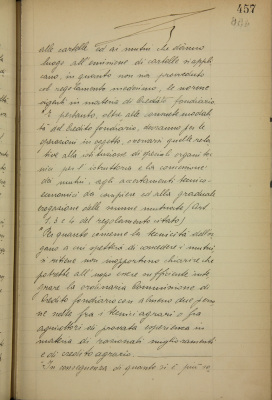 457
alle cartelle ed ai mutui che diano
luogo all'emissione di cartelle si appli
cano, in quanto non sia provveduto
col regolamento medesimo, le norme
vigenti in materia di Credito fondiario.
"E pertanto, oltre alle consuete modali
tà del Credito fondiario, dovranno, per le
operazioni in oggetto, osservarsi quelle rela
tive alla costituzione di speciali organi tec
nici per l'istruttoria e la concessione
dei mutui, agli accertamenti tecnico
economici da compiere ed alla graduale
erogazione delle somme mutuate (Art
1. 3 e 4 del regolamento citato)
"Per quanto concerne la tecnicità dell'or
gano a cui spetterà di concedere i mutui,
si ritiene non inopportuno chiarire che
potrebbe all'uopo essere sufficiente inte
grare la ordinaria Commissione di
Credito fondiario con almeno due perso
ne scelte fra i tecnici agrari o fra
agricoltori di provata esperienza in
materia di razionali miglioramenti
e di credito agrario.
"In conseguenza di quanto si è